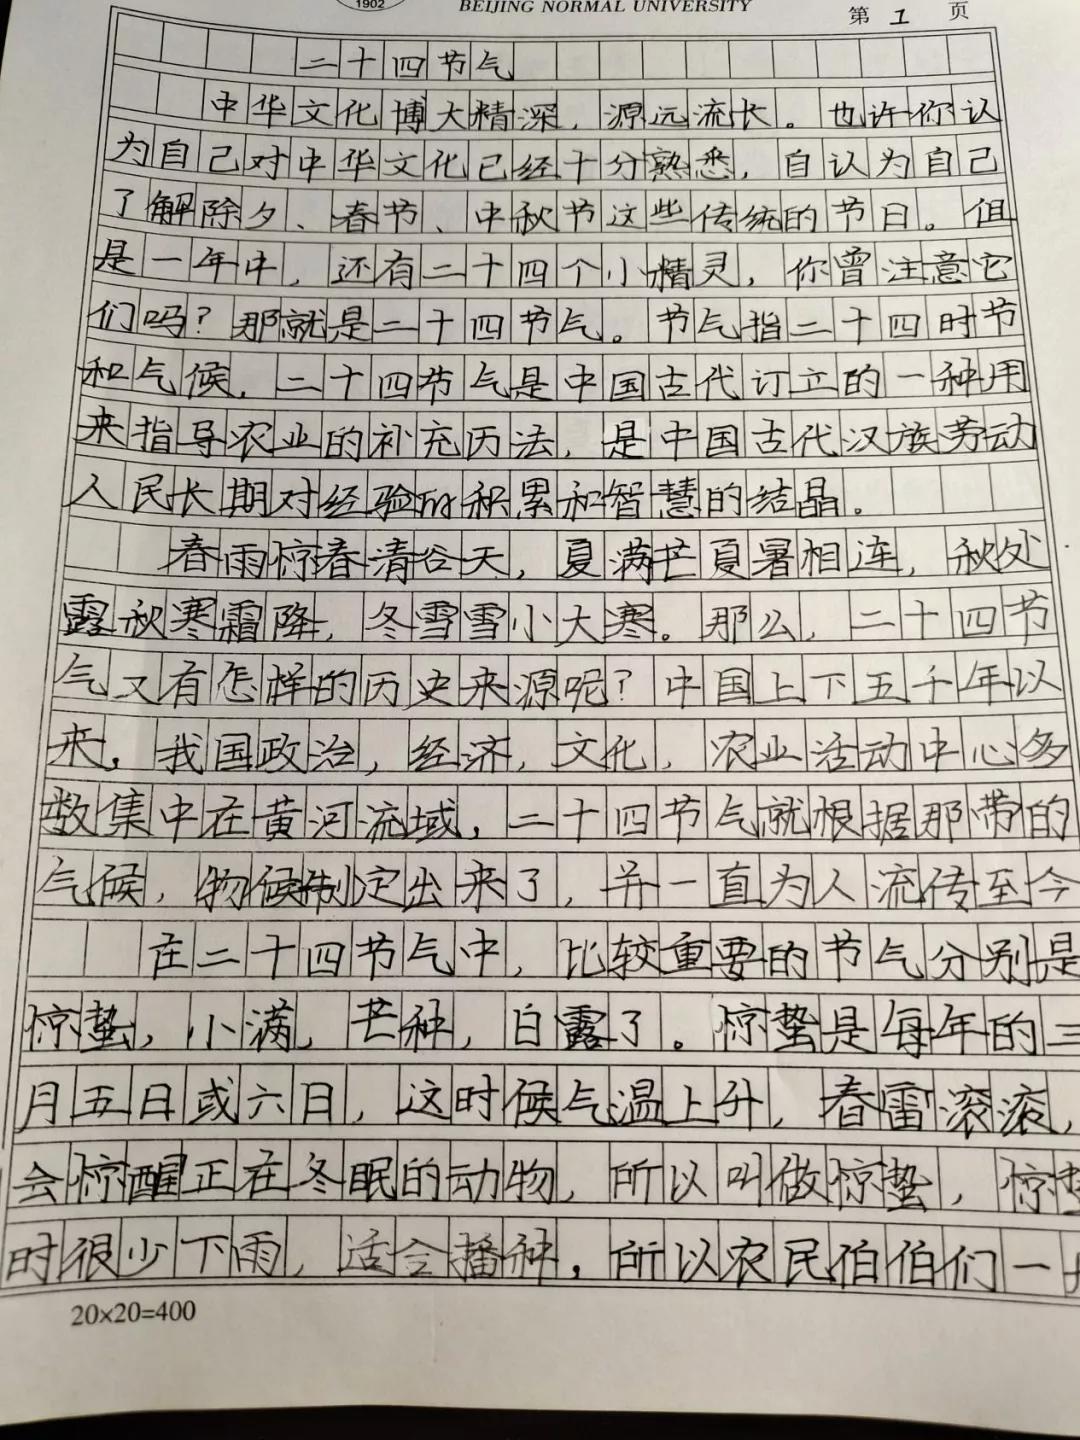 1902
BEIJING NORMAL UNIVERSITY
第 1 页
二十四节气
中华文化博大精深，源远流长。也许你认
为自己对中华文化已经十分熟悉，自认为自己
了解除夕、春节、中秋节这些传统的节日。但
是一年中，还有二十四个小精灵，你曾注意它
们吗？那就是二十四节气。节气指二十四时节
和气候，二十四节气是中国古代订立的一种用
来指导农业的补充历法，是中国古代汉族劳动
人民长期对经验的积累和智慧的结晶。
春雨惊春清谷天，夏满芒夏暑相连，秋处
露秋寒霜降，冬雪雪小大寒。那么，二十四节
气又有怎样的历史来源呢？中国上下五千年以
来，我国政治，经济，文化，农业活动中心多
数集中在黄河流域，二十四节气就根据那带的
气候，物候制定出来了，并一直为人流传至今
在二十四节气中，比较重要的节气分别是
惊蛰，小满，芒种，白露了。惊蛰是每年的三
月五日或六日，这时候气温上升，春雷滚滚，
会惊醒正在冬眠的动物，所以叫做惊蛰，惊蛰
时很少下雨，适合播种，所以农民伯伯们一
20×20=400